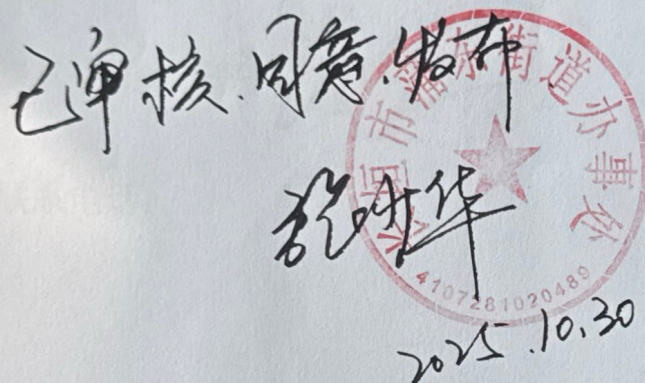 已审核、同意、发布
长垣市蒲东街道办事处
华
4107281020489
2025.10.30